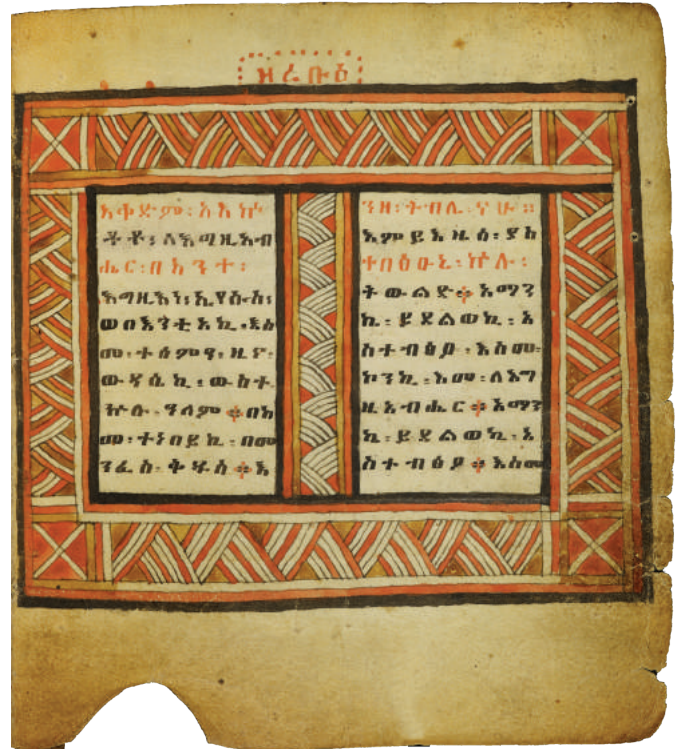 ዝረቡዕ
አቅድም፡ አእኵ
ቶቶ፡ ለእግዚአብ
ሔር፡ በእንተ፡
እግዚእነ፡ ኢየሱስ፡
ወበእንቲአኪ፡ እስ
መ፡ ተሰምዓ፡ ዜና
ውዳሴኪ፡ ውስተ
ኵሉ፡ ዓለም ።በከ
መ፡ ተነበይኪ፡ በመ
ንፈስ፡ ቅዱስ ።እ
ንዘ፡ ትብሊ፡ ናሁ ።
እምይእዜሰ፡ ያስ
ተበፅዑኒ፡ ኵሉ፡
ትውልድ ።አማን
ኬ፡ ይደልወኪ፡ አ
ስተብፅዖ፡ እስመ
ኮንኪ፡ እመ፡ ለእግ
ዚአብሔር ።አማን
ኬ፡ ይደልወኪ፡ አ
ስተብፅዖ ።እስመ